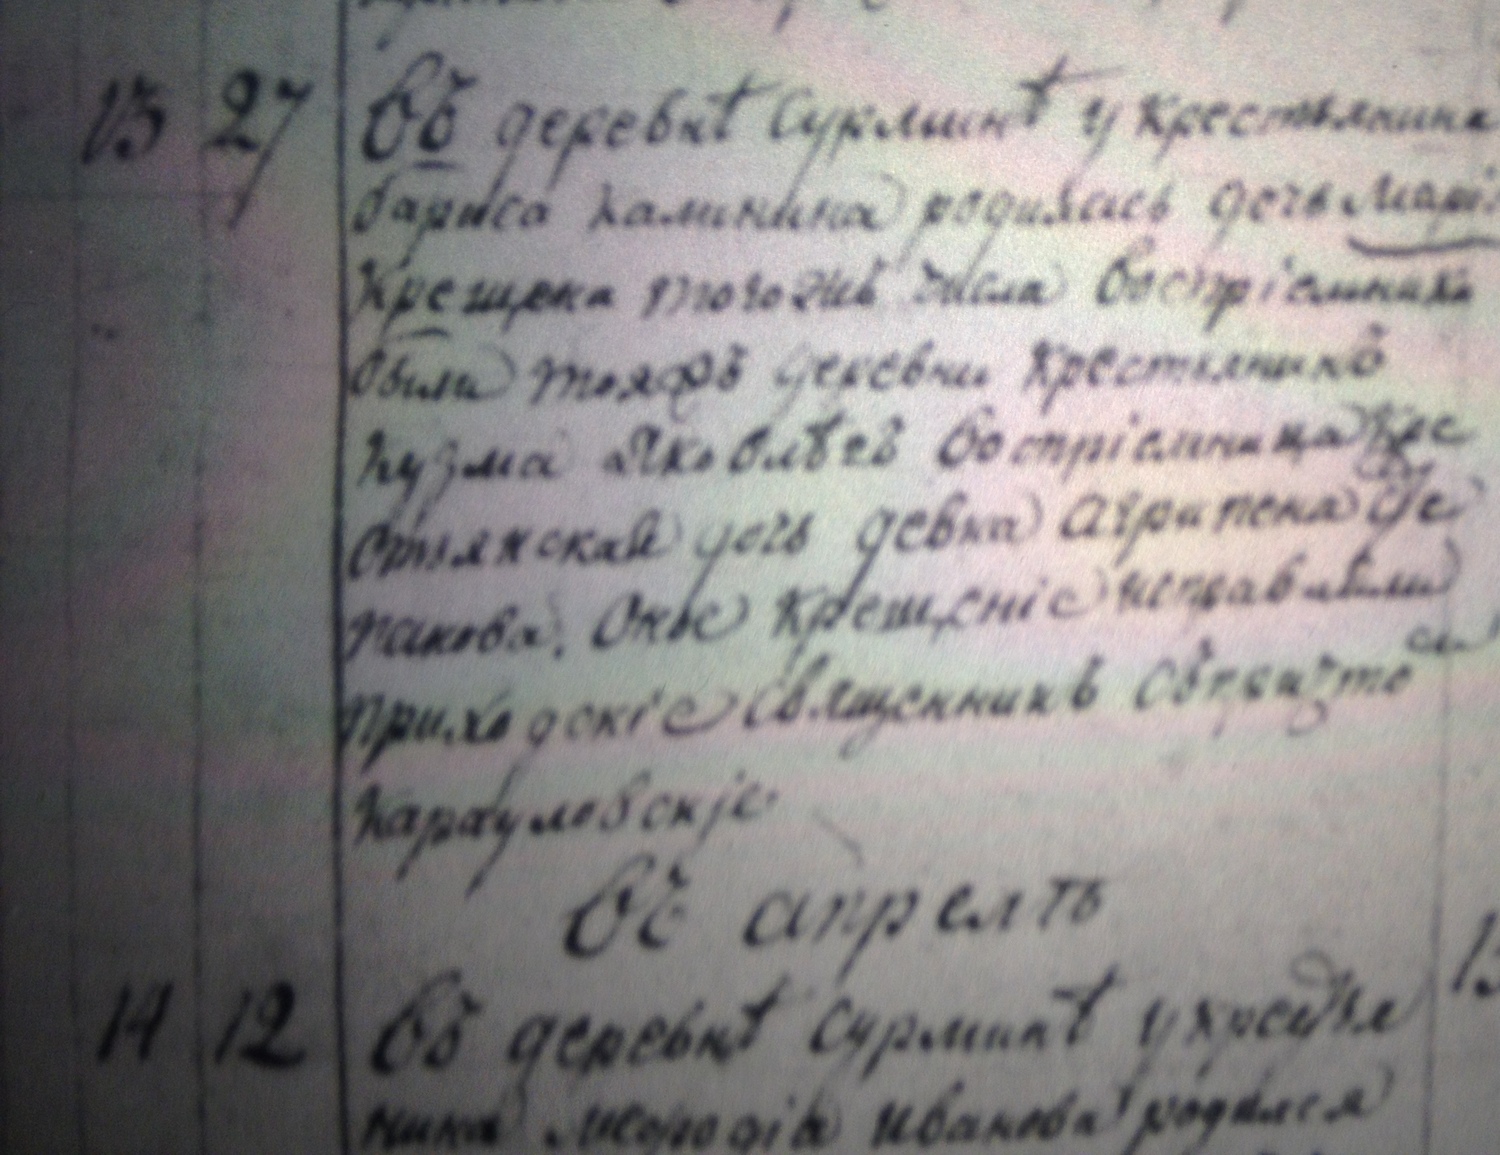 13 27 Въ деревнѣ Сурминѣ у крестьянина
бариса калинина родилась дочь Марія
крещена тогожъ числа воспріемники
были тояжъ деревни крестьянинъ
кузма Яковлѣвъ воспріемница кре
стьянская дочь девка Агрипена Сте
панова. Оное крещеніе исправляли
приходскіе священникъ Съпричтомъ
Карауловскіе
Въ апрелѣ
14 12 Въ деревнѣ Сурминѣ у крестья
нина Меѳодія Иванова родился